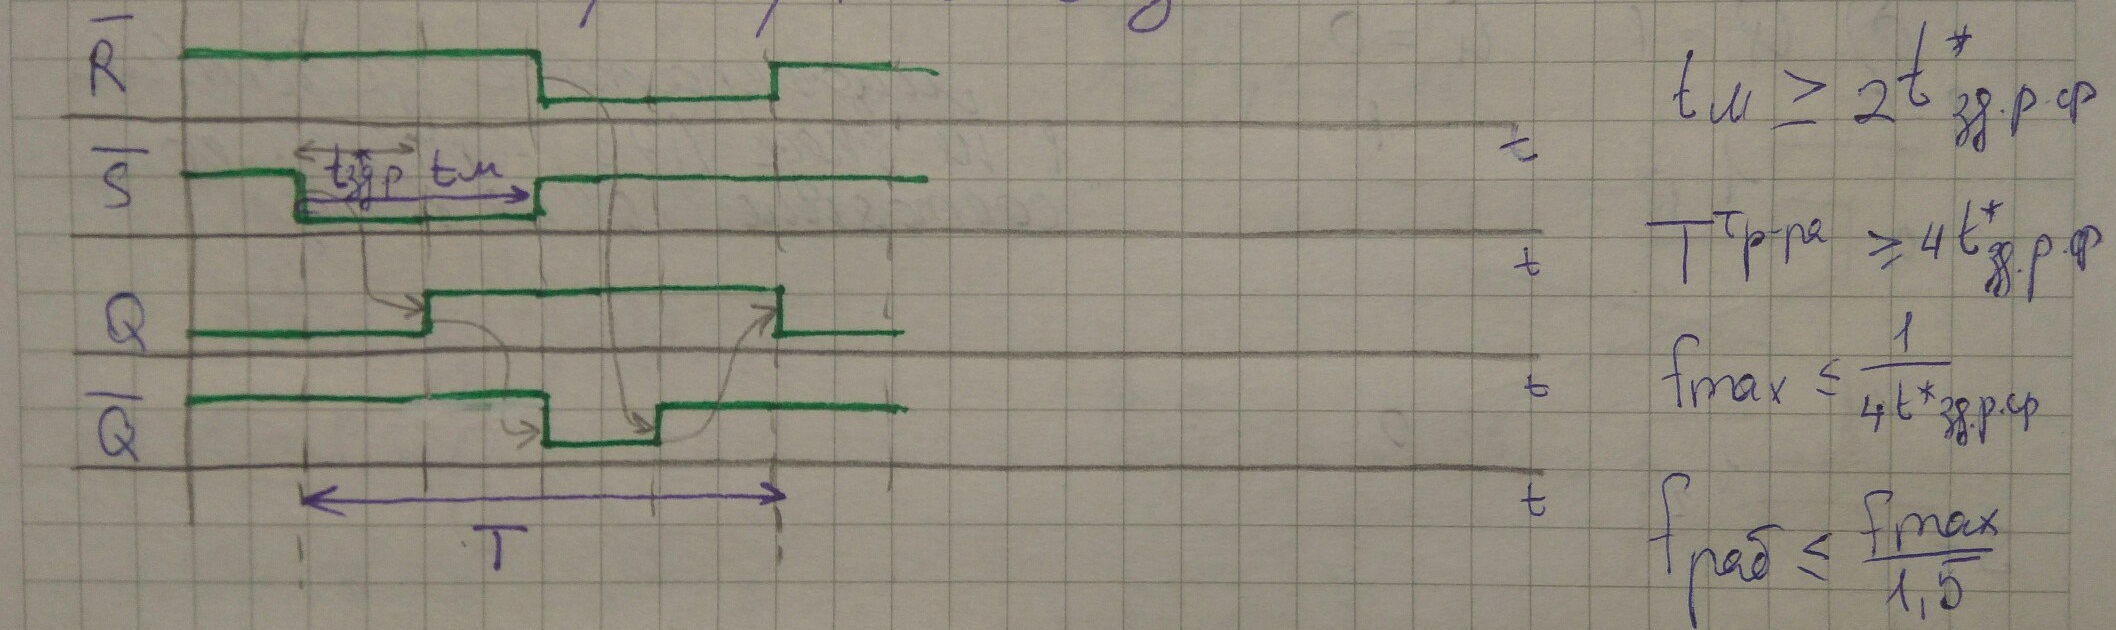 R̅
t
S̅
t*зд.р tи
t
Q
t
Q̅
t
T
tи ≥ 2t*зд.р.ср
T тр-ра ≥ 4t*зд.р.ср
fmax ≤ 1/4t*зд.р.ср
fраб ≤ fmax/1,5